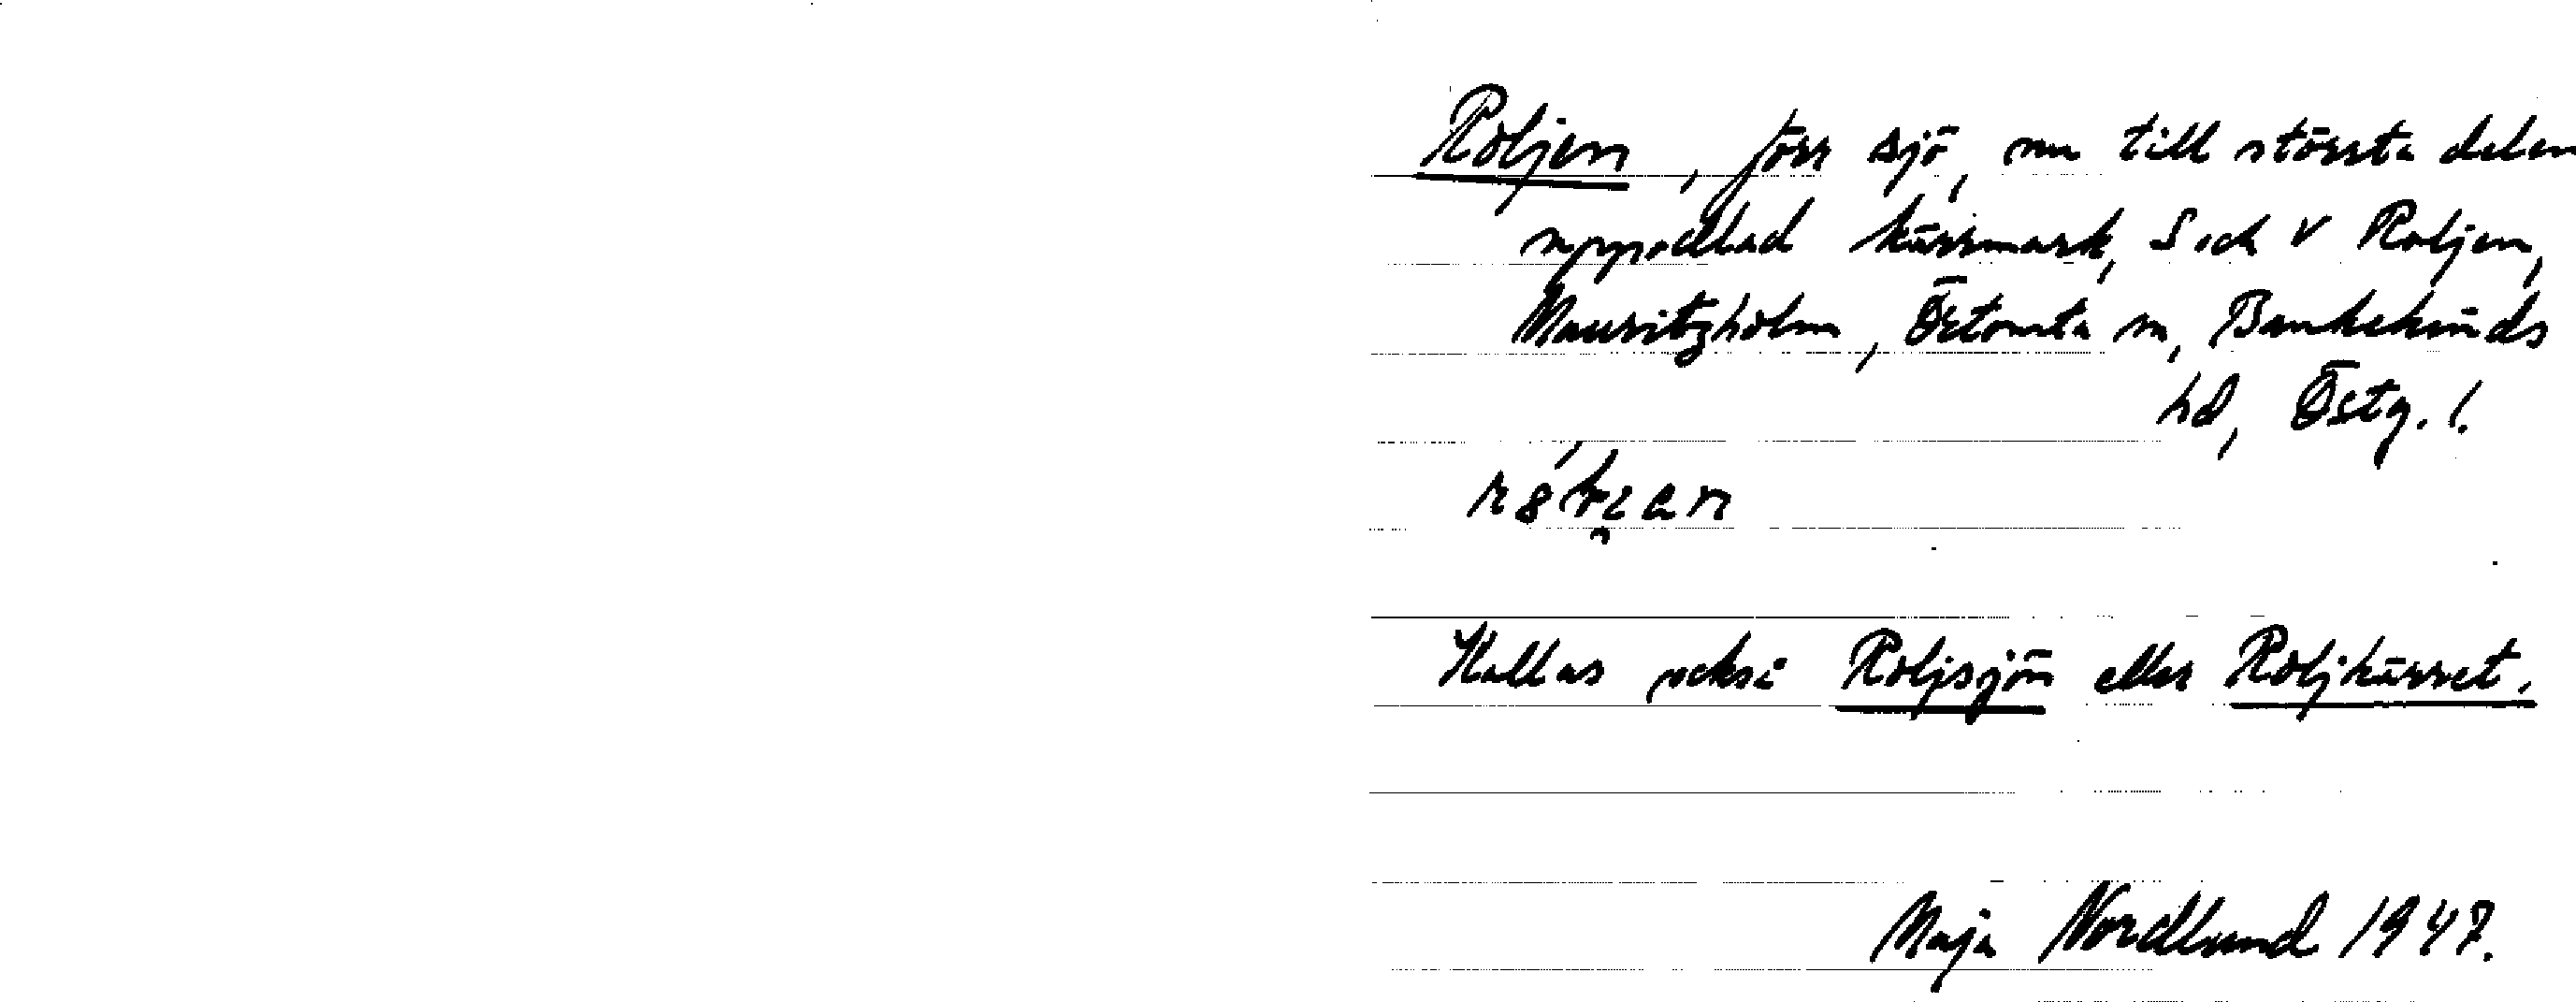 Roljen, förr sjö, nu till största delen
uppodlad kärrmark, S och V Roljen,
Mauritzholm, Östomta sn, Bankekinds
hd, Östg. l.
Kallas också Roljsjön eller Roljkärret.
Maja Nordlund 1947.